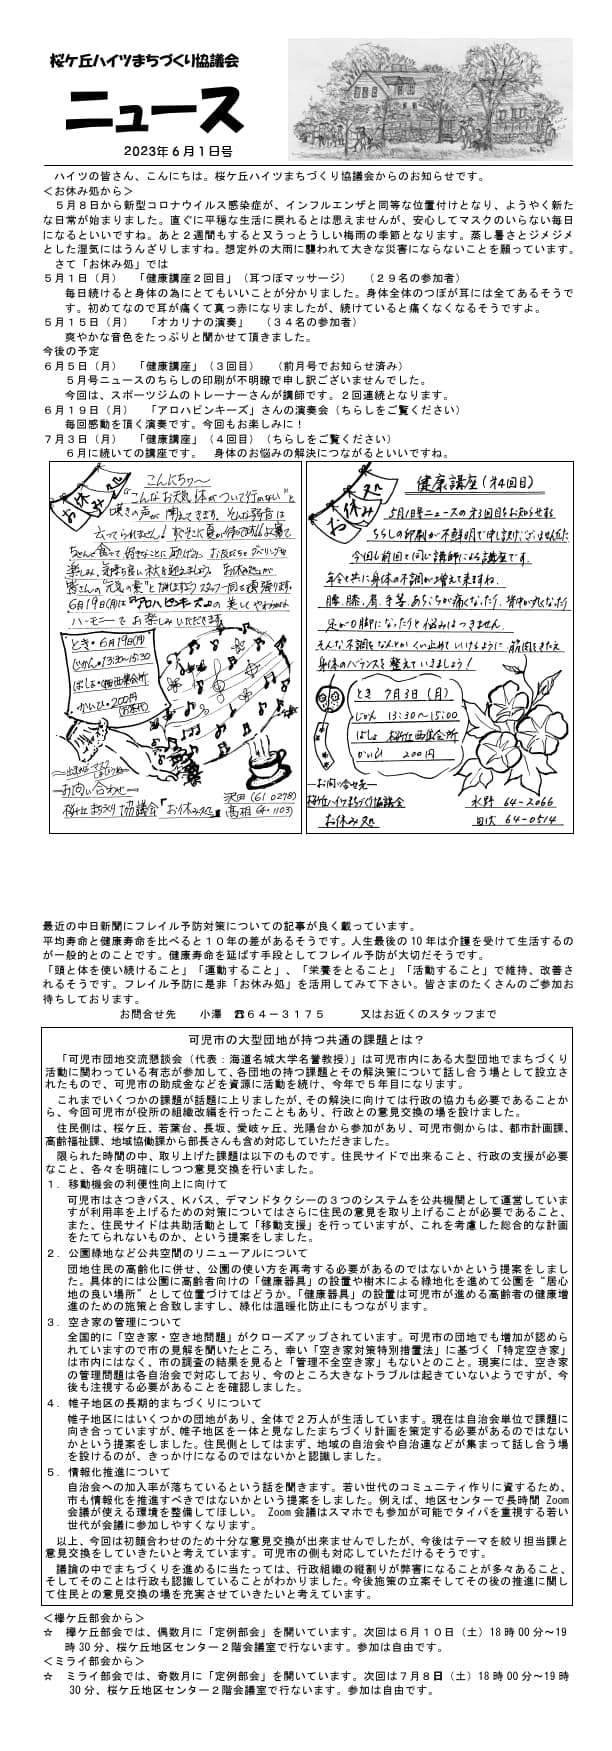 桜ケ丘ハイツまちづくり協議会
ニュース
2023年6月1日号
ハイツの皆さん、こんにちは。桜ケ丘ハイツまちづくり協議会からのお知らせです。
＜お休み処から＞
５月８日から新型コロナウイルス感染症が、インフルエンザと同等な位置付けとなり、ようやく新た
な日常が始まりました。直ぐに平穏な生活に戻れるとは思えませんが、安心してマスクのいらない毎日
になるといいですね。あと２週間もすると又うっとうしい梅雨の季節となります。蒸し暑さとジメジメ
とした湿気にはうんざりしますね。想定外の大雨に襲われて大きな災害にならないことを願っています。
さて「お休み処」では
５月１日（月）　「健康講座２回目」（耳つぼマッサージ）　（２９名の参加者）
毎日続けると身体の為にとてもいいことが分かりました。身体全体のつぼが耳には全てあるそうで
す。初めてなので耳が痛くて真っ赤になりましたが、続けていると痛くなくなるそうですよ。
５月１５日（月）　「オカリナの演奏」　（３４名の参加者）
爽やかな音色をたっぷりと聞かせて頂きました。
今後の予定
６月５日（月）　「健康講座」（３回目）　（前月号でお知らせ済み）
５月号ニュースのちらしの印刷が不明瞭で申し訳ございませんでした。
今回は、スポーツジムのトレーナーさんが講師です。２回連続となります。
６月１９日（月）　「アロハピンキーズ」さんの演奏会（ちらしをご覧ください）
毎回感動を頂く演奏です。今回もお楽しみに！
７月３日（月）　「健康講座」（４回目）（ちらしをご覧ください）
６月に続いての講座です。　身体のお悩みの解決につながるといいですね。
お休み処
こんにちわ〜
"こんなお天気 体がついて行かない"と
嘆きの声が聞えてきます。そんな弱音は
6月19日(月)は『アロハピンキーズ』の美しくやわらかな
ハーモニーでお楽しみいただきます
とき・6月19日(月)
じかん・13:30〜15:30
ばしょ・桜ケ丘西集会所
かいひ・200円
(お茶代)
お問い合わせ
桜ケ丘まちづくり協議会『お休み処』
沢田(61 0278)
髙相(64-1103)
お休み処
健康講座(第4回目)
5月1日号ニュースの第3回目をお知らせする
ちらしの印刷が不鮮明で申し訳ございませんでした
今回も前回と同じ講師による講座です。
年令と共に身体の不調が増えて来ますね。
腰、膝、肩、手等、あちらこちらが痛くなったり、背中が丸くなったり
足がO脚になったりと悩みはつきません。
そんな不調をなんとかくい止めていけるように筋肉をきたえ
身体のバランスを整えていきましょう！
とき 7月3日(月)
じかん 13:30〜15:00
ばしょ 桜ケ丘西集会所
かいひ 200円
お問い合せ先
桜ケ丘ハイツまちづくり協議会
お休み処
水野 64-2066
64-0514
最近の中日新聞にフレイル予防対策についての記事が良く載っています。
平均寿命と健康寿命を比べると１０年の差があるそうです。人生最後の10年は介護を受けて生活するの
が一般的とのことです。健康寿命を延ばす手段としてフレイル予防が大切だそうです。
「頭と体を使い続けること」「運動すること」、「栄養をとること」「活動すること」で維持、改善さ
れるそうです。フレイル予防に是非「お休み処」を活用してみて下さい。皆さまのたくさんのご参加お
待ちしております。
お問合せ先　　小澤　☎６４－３１７５　　又はお近くのスタッフまで
可児市の大型団地が持つ共通の課題とは？
「可児市団地交流懇談会（代表：海道名城大学名誉教授）」は可児市内にある大型団地でまちづくり
活動に関わっている有志が参加して、各団地の持つ課題とその解決策について話し合う場として設立さ
れたもので、可児市の助成金などを資源に活動を続け、今年で５年目になります。
これまでいくつかの課題が話題に上りましたが、その解決に向けては行政の協力も必要であることか
ら、今回可児市が役所の組織改編を行ったこともあり、行政との意見交換の場を設けました。
住民側は、桜ケ丘、若葉台、長坂、愛岐ケ丘、光陽台から参加があり、可児市側からは、都市計画課、
高齢福祉課、地域協働課から部長さんも含め対応していただきました。
限られた時間の中、取り上げた課題は以下のものです。住民サイドで出来ること、行政の支援が必要
なこと、各々を明確にしつつ意見交換を行いました。
１．移動機会の利便性向上に向けて
可児市はさつきバス、Ｋバス、デマンドタクシーの３つのシステムを公共機関として運営していま
すが利用率を上げるための対策についてはさらに住民の意見を取り上げることが必要であること、
また、住民サイドは共助活動として「移動支援」を行っていますが、これを考慮した総合的な計画
をたてられないものか、という提案をしました。
２．公園緑地など公共空間のリニューアルについて
団地住民の高齢化に併せ、公園の使い方を再考する必要があるのではないかという提案をしまし
た。具体的には公園に高齢者向けの「健康器具」の設置や樹木による緑地化を進めて公園を“居心
地の良い場所”として位置づけてはどうか。「健康器具」の設置は可児市が進める高齢者の健康増
進のための施策と合致しますし、緑化は温暖化防止にもつながります。
３．空き家の管理について
全国的に「空き家・空き地問題」がクローズアップされています。可児市の団地でも増加が認めら
れていますので市の見解を聞いたところ、幸い「空き家対策特別措置法」に基づく「特定空き家」
は市内にはなく、市の調査の結果を見ると「管理不全空き家」もないとのこと。現実には、空き家
の管理問題は各自治会で対応しており、今のところ大きなトラブルは起きていないようですが、今
後も注視する必要があることを確認しました。
４．帷子地区の長期的まちづくりについて
帷子地区にはいくつかの団地があり、全体で２万人が生活しています。現在は自治会単位で課題に
向き合っていますが、帷子地区を一体と見なしたまちづくり計画を策定する必要があるのではない
かという提案をしました。住民側としてはまず、地域の自治会や自治連などが集まって話し合う場
を設けるのが、きっかけになるのではないかと認識しました。
５．情報化推進について
自治会への加入率が落ちているという話を聞きます。若い世代のコミュニティ作りに資するため、
市も情報化を推進すべきではないかという提案をしました。例えば、地区センターで長時間 Zoom
会議が使える環境を整備してほしい。 Zoom会議はスマホでも参加が可能でタイパを重視する若い
世代が会議に参加しやすくなります。
以上、今回は初顔合わせのため十分な意見交換が出来ませんでしたが、今後はテーマを絞り担当課と
意見交換をしていきたいと考えています。可児市の側も対応していただけるそうです。
議論の中でまちづくりを進めるに当たっては、行政組織の縦割りが弊害になることが多々あること、
そしてそのことは行政も認識していることがわかりました。今後施策の立案そしてその後の推進に関し
て住民との意見交換の場を充実させていきたいと考えています。
＜欅ケ丘部会から＞
☆　欅ケ丘部会では、偶数月に「定例部会」を開いています。次回は６月１０日（土）18時00分〜19
時30分、桜ケ丘地区センター２階会議室で行ないます。参加は自由です。
＜ミライ部会から＞
☆　ミライ部会では、奇数月に「定例部会」を開いています。次回は７月８日（土）18時00分〜19時
30分、桜ケ丘地区センター２階会議室で行ないます。参加は自由です。